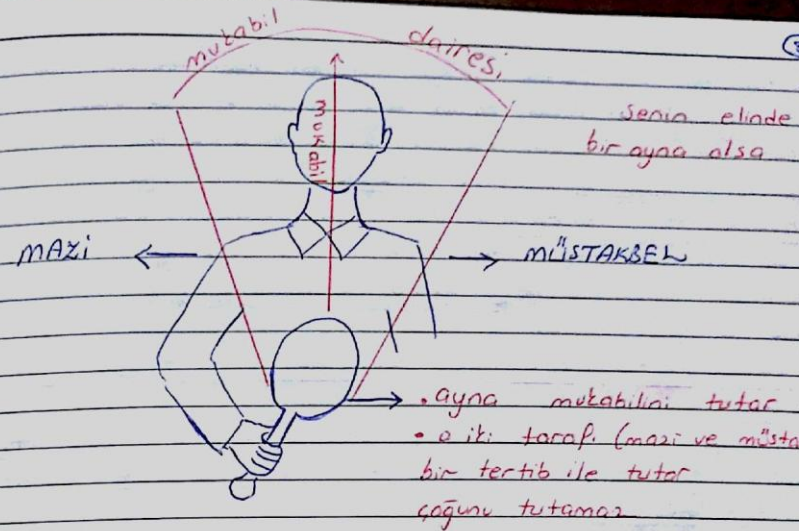 mukabil dairesi
senin elinde
bir ayna olsa
mukabil
MAZİ
MÜSTAKBEL
• ayna mukabilini tutar
• o iki tarafı (mazi ve müsta
bir tertib ile tutar
çoğunu tutamaz